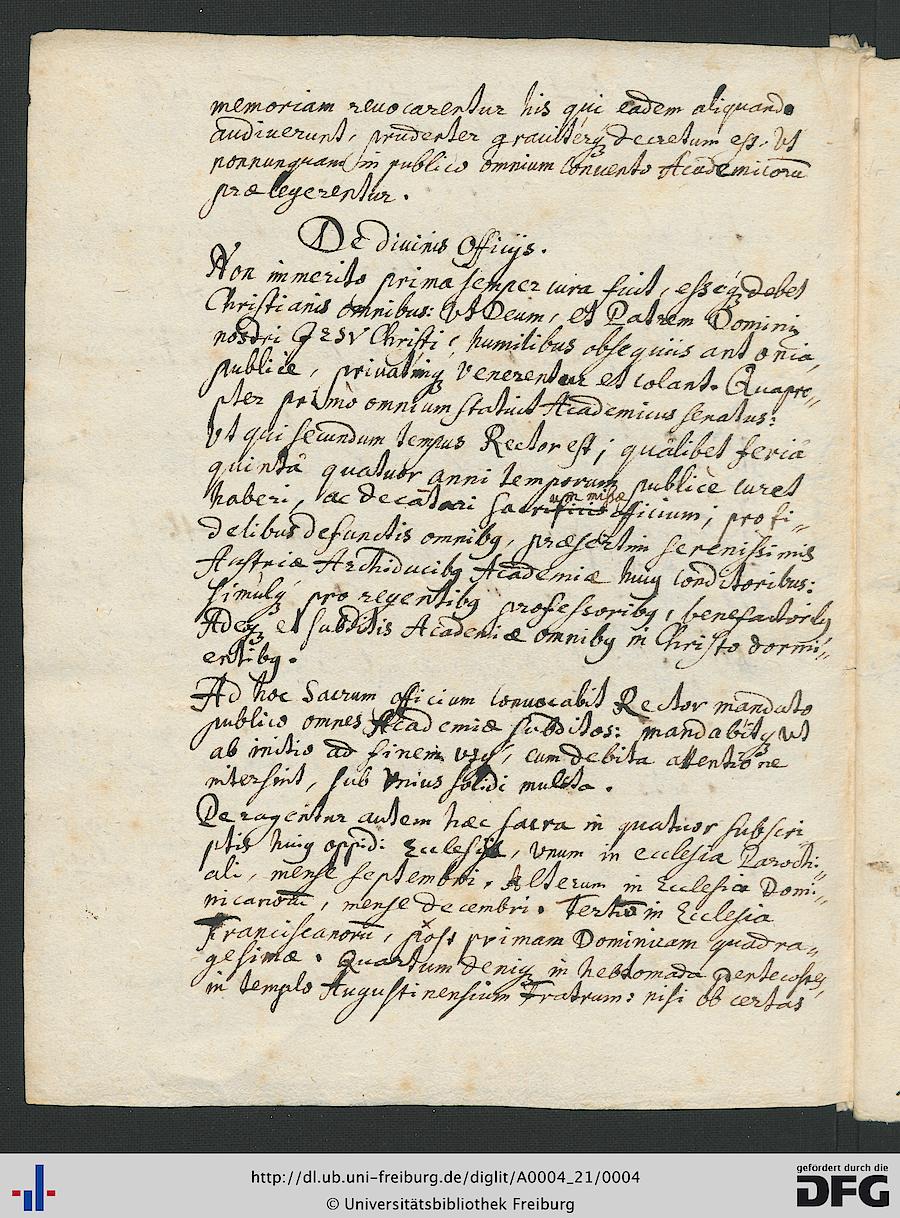 memoriam reuocarentur his qui eadem aliquando
audiuerunt, prudenter grauiterq; decretum est, Vt
nonnunquam in publico omnium Conuento Academicorū
prælegerentur.
De diuinis Officijs.
Non immerito prima semper cura fuit, esseq; debet
Christianis omnibus: Vt Deum, et Patrem Domini
nostri JESV Christi, humilibus obsequiis ant onia,
publicè, priuatimq; venerentur et colant. Quapro„
pter primò omnium statuit Academicus senatus:
Vt qui secundum tempus Rector est, quâlibet feriâ
quintâ quatuor anni temporum publicè curet
haberi, ac decãtari sacrum missæ officium, pro fi„
delibus defunctis omnibq, præsertim serenissimis
Austriæ Archiducibq Academiæ huiq conditoribus:
simulq; pro regentibq professoribq, benefactoribq
Adeoq; et subditis Academiæ omnibq in Christo dormi„
entibq.
Ad hoc Sacrum officium conuocabit Rector mandato
publico omnes Academiæ subditos: mandabitq; vt
ab initio ad finem vsq;, cum debita attentione
intersint, sub Vnius solidi mulcta.
Peragentur autem hæc sacra in quatuor subscri
ptis huiq oppidi Ecclesiis, vnum in ecclesia Parochi„
ali, mense septembri. Alterum in Ecclesia Domi„
nicanorū, mense decembri. Tertiū in Ecclesia
Franciscanorū, post primam Dominicam quadra„
gesimæ. Quartum deniq; in hebdomada Pentecostes,
in templo Augustinensium Fratrum: nisi ob certas
http://dl.ub.uni-freiburg.de/diglit/A0004_21/0004
© Universitätsbibliothek Freiburg
gefördert durch die
DFG